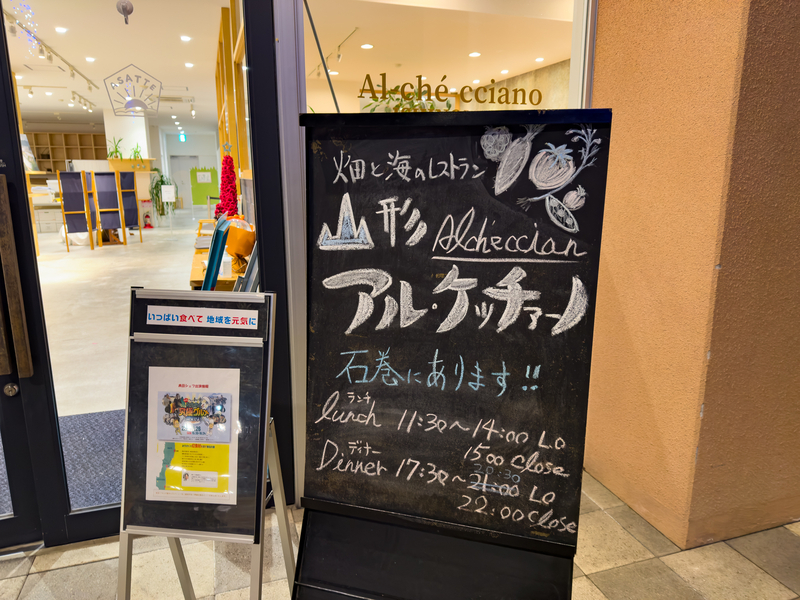 ASATTE
Al-ché-cciano
畑と海のレストラン
山形 Alchéccian
アル・ケッチァーノ
石巻にあります!!
ランチ
lunch 11:30~14:00 L.O
15:00 close
ディナー
20:30
Dinner 17:30~21:00 LO
22:00 close
いっぱい食べて 地域を元気に